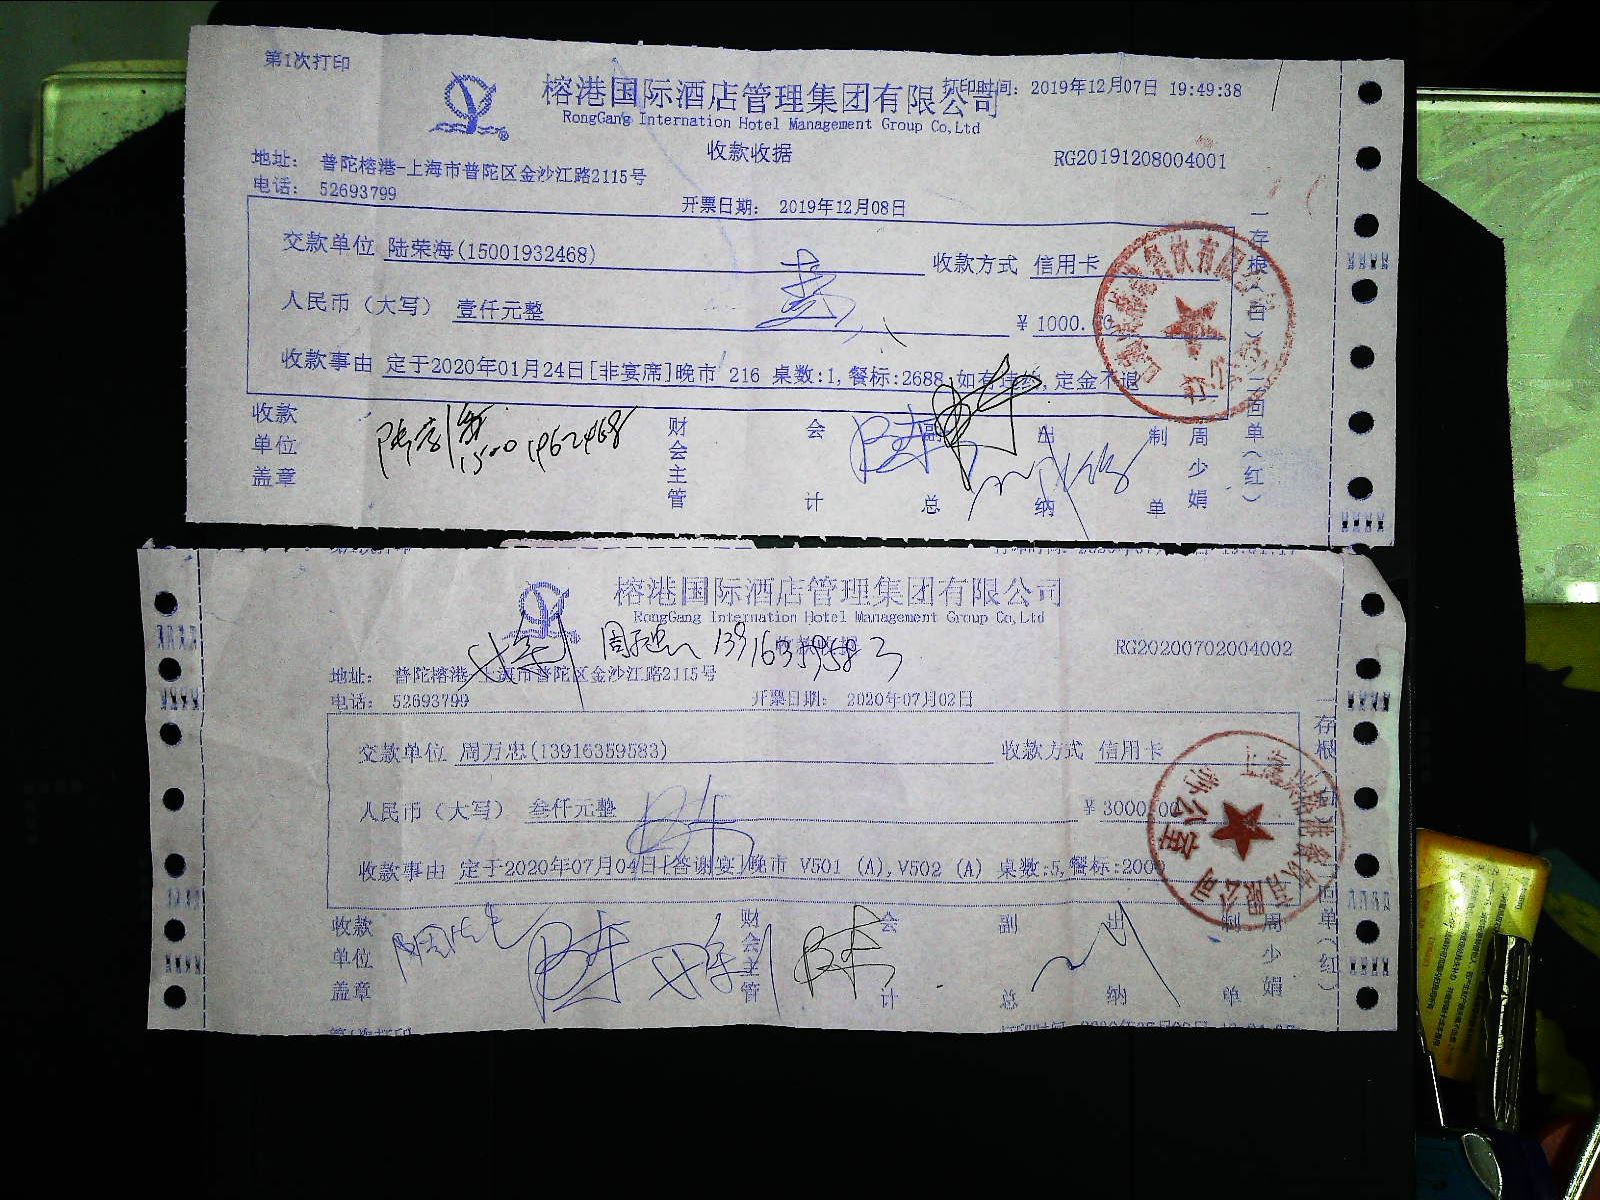 第1次打印
榕港国际酒店管理集团有限公司
打印时间: 2019年12月07日 19:49:38
RongGang Internation Hotel Management Group Co,Ltd
收款收据
RG20191208004001
地址: 普陀榕港-上海市普陀区金沙江路2115号
电话: 52693799
开票日期: 2019年12月08日
交款单位 陆荣海(15001932468) 收款方式 信用卡
人民币（大写） 壹仟元整 ¥ 1000.00
收款事由 定于2020年01月24日[非宴席]晚市 216 桌数:1,餐标:2688,如有违约,定金不退
收款单位盖章 财会主管 会计 副总 出纳 制单 周少娟
一存根（白）二回单（红）
榕港国际酒店管理集团有限公司
RongGang Internation Hotel Management Group Co,Ltd
收款收据
13916359583
RG20200702004002
地址: 普陀榕港-上海市普陀区金沙江路2115号
电话: 52693799
开票日期: 2020年07月02日
交款单位 周万忠(13916359583) 收款方式 信用卡
人民币（大写） 叁仟元整 ¥ 3000.00
收款事由 定于2020年07月04日[答谢宴]晚市 V501 (A),V502 (A) 桌数:5,餐标:2000
收款单位盖章 财会主管 会计 副总 出纳 制单 周少娟
一存根（白）二回单（红）